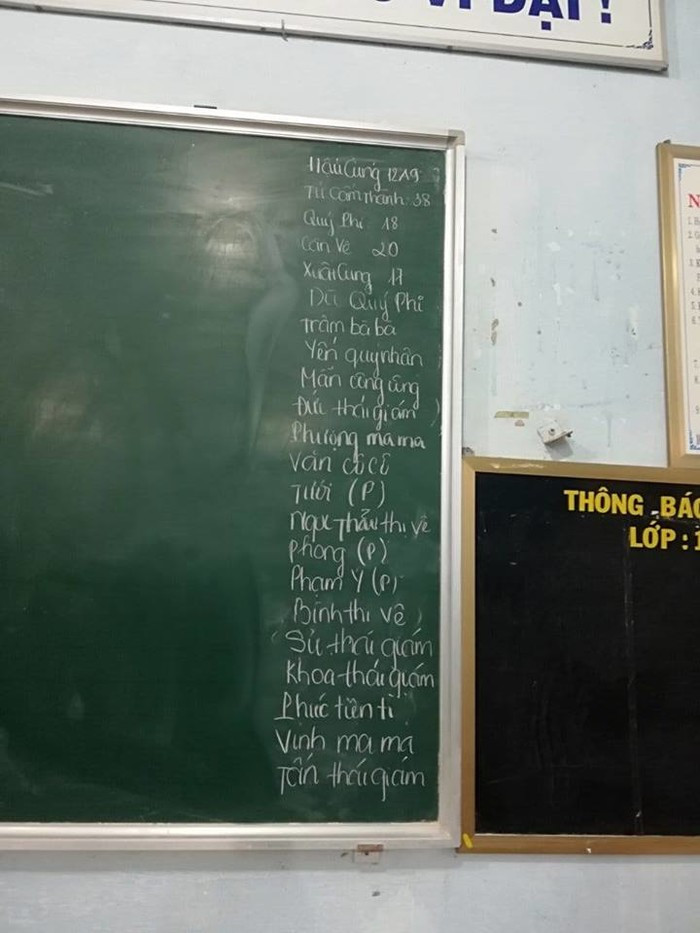 VĨ ĐẠI !
Hậu Cung 12A9
Tử Cấm Thành: 38
Quý Phi 18
Cấn Vệ 20
Xuân Cung 17
Dã Quý Phi
Trâm bà bà
Yến quý nhân
Mẩn công công
Đức thái giám
Phượng ma ma
Vân cô cô
Tưới (P)
Ngọc Thẩu thị vệ
Phong (P)
Phạm Ý (P)
Bính thị vệ
Sử thái giám
Khoa thái giám
Phúc tiện tì
Vinh ma ma
Tấn thái giám
THÔNG BÁO
LỚP : 1
N